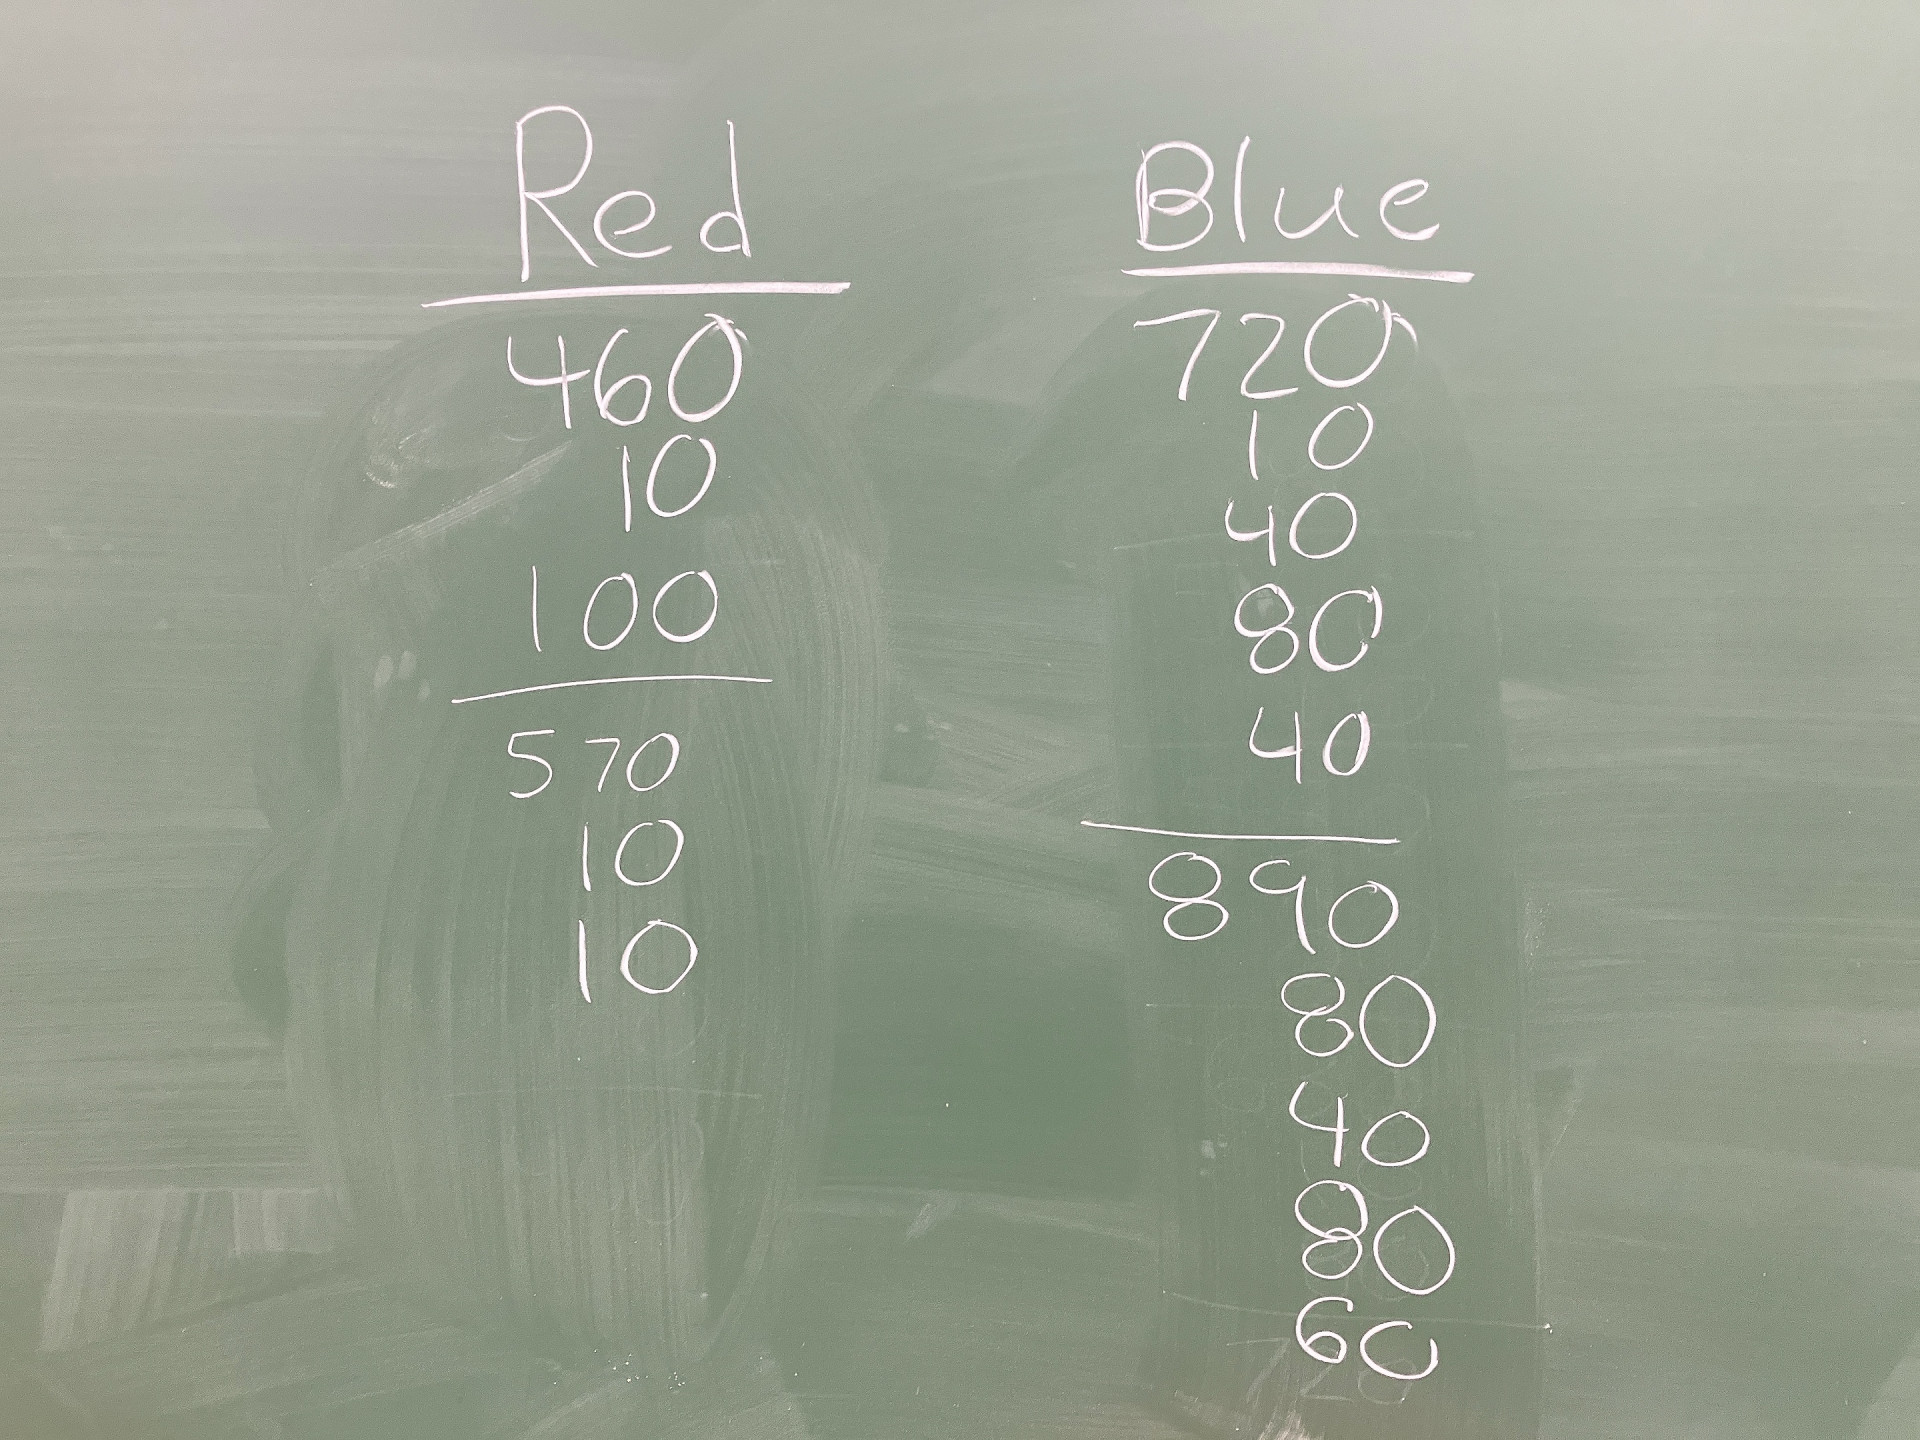 Red
460
10
100
570
10
10
Blue
720
10
40
80
40
890
80
40
80
60